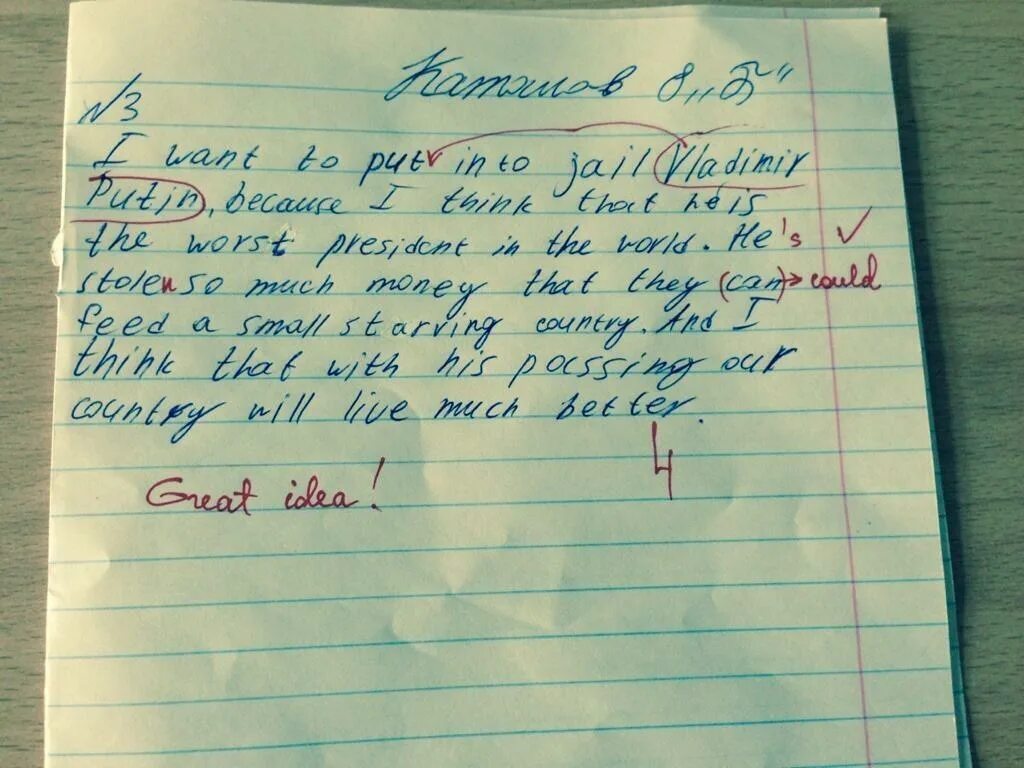 Катышов 8 „Б"
№3
I want to put into jail Vladimir
Putin, because I think that he is
the worst president in the world. He's
stolen so much money that they (can) → could
feed a small starving country. And I
think that with his pocssing our
country will live much better.
Great idea! 4